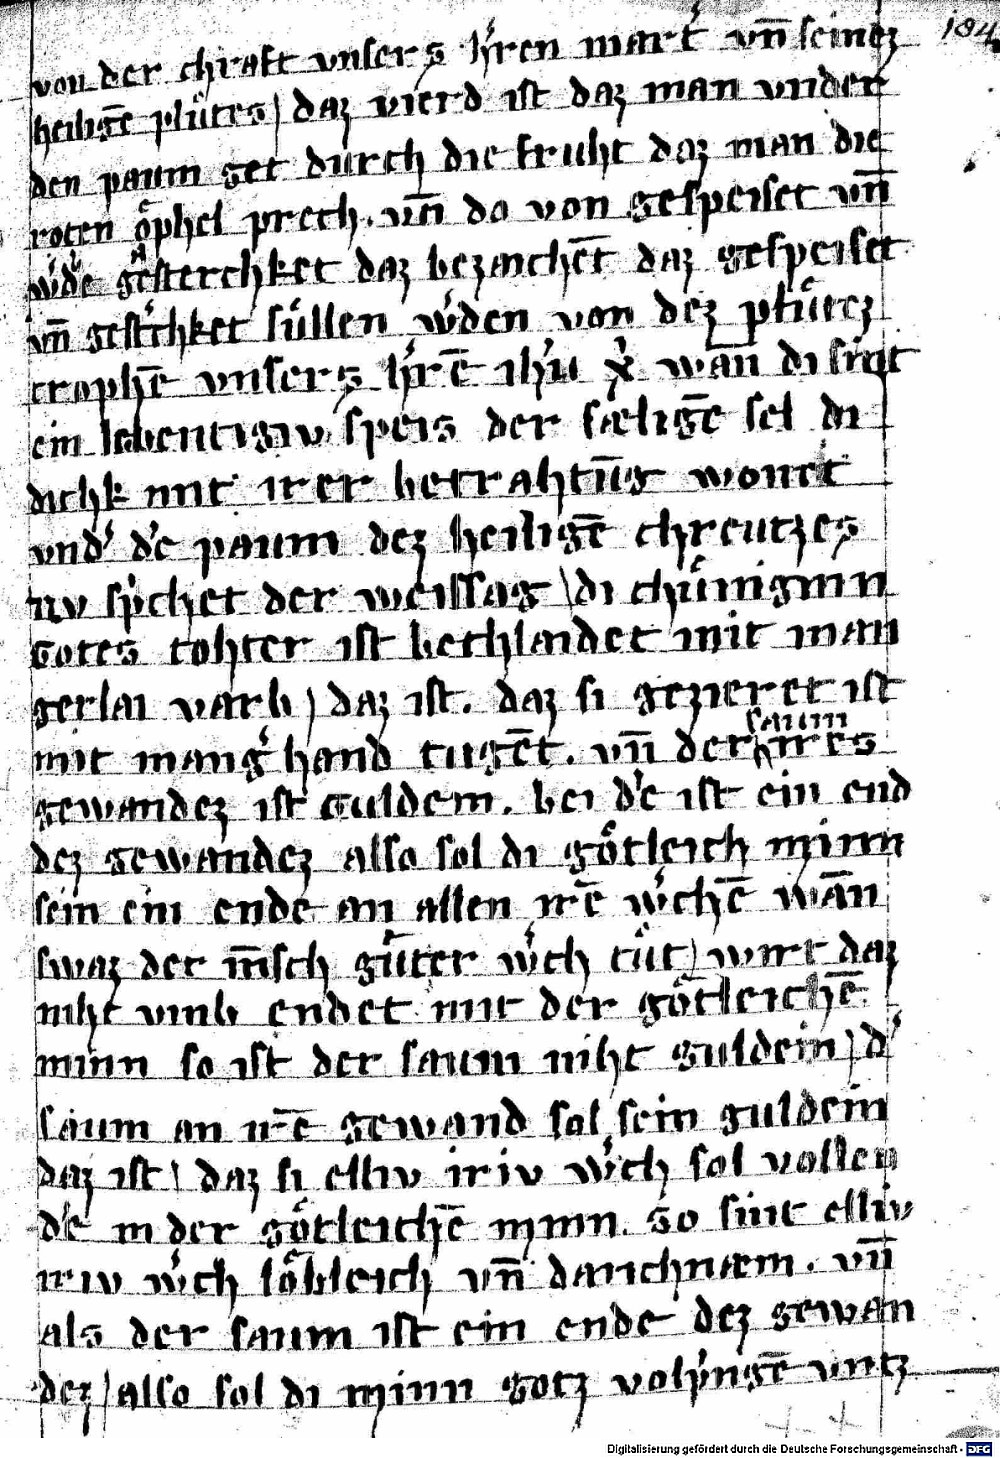 184
von der chraft vnsers h̓ren mart̓ vn̄ seinez
heiliḡe plu̍tes / daz vierd ist daz man vnder
den paum get durch die fruht daz man die
roten o̍phel prech . vn̄ do von gespeiset vn̄
w̓de gesterchket daz bezaichēt daz gespeiset
vn̄ gest̓chket su̍llen w̓den von dez plu̍tez
trophē vnsers h̓rē ih̓u x̓ wan di sint
ein lebentigiv speis der sæliḡe sel di
dichk mit irer betrahtūg wont
vnd̓ d̓e paum dez heiliḡe chreutzes
nv sp̓chet der weissag / di chu̍niginn
gotes tohter ist bechlaidet mit man
gerlai varb / daz ist . daz si gezieret ist
mit mang̓hand tugēt . vn̄ der saum ires
gewandez ist guldem . bei d̓e ist ein end
dez gewandez also sol di go̍tleich minn
sein ein ende an allen irē w̓chē wān
swaz der m̄sch gu̍ter w̓ch tu̍t / wirt daz
niht vmb endet mit der go̍tleichē
minn so ist der saum niht guldein / d̓
saum an irē gewand sol sein guldein
daz ist / daz si elliv iriv w̓ch sol vollen
de in der go̍tleichē minn . So sint elliv
iriv w̓ch lo̍bleich vn̄ danchnæm . vn̄
als der saum ist ein ende dez gewan
dez / also sol di minn gotz volp̓ngē vntz
Digitalisierung gefördert durch die Deutsche Forschungsgemeinschaft - DFG